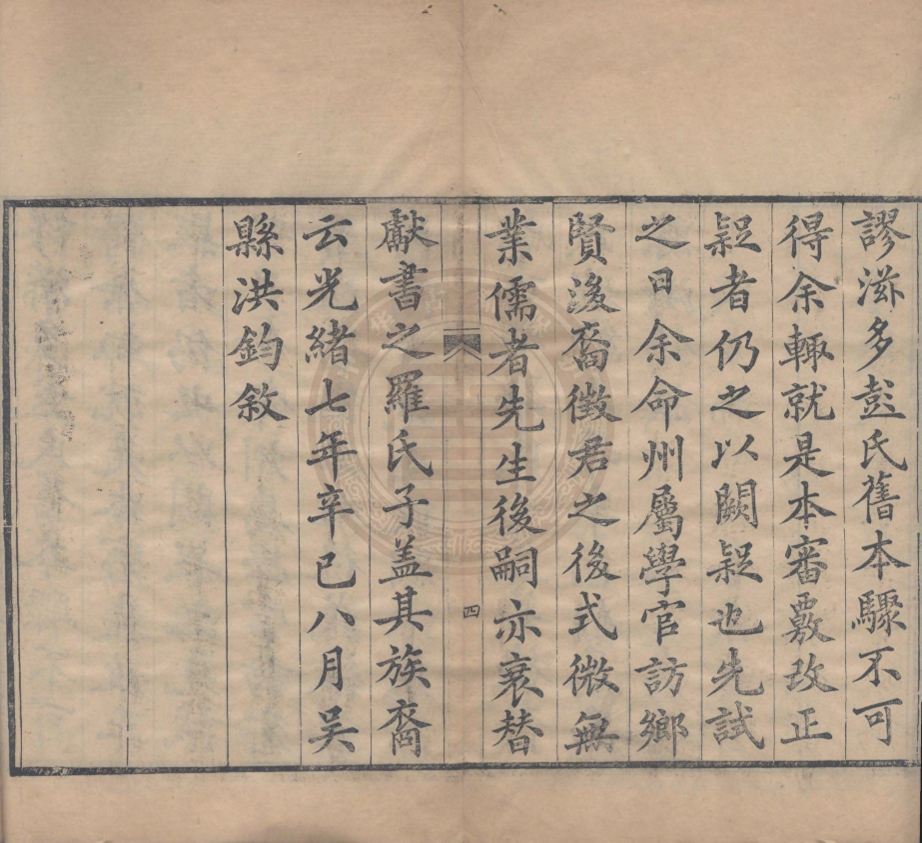 謬滋多彭氏舊本驟不可
得余輙就是本審覈攷正
疑者仍之以闕疑也先試
之日余命州屬學官訪鄉
賢後裔徵君之後式微無
業儒者先生後嗣亦衰替
四
獻書之羅氏子蓋其族裔
云光緒七年辛巳八月吳
縣洪鈞敘